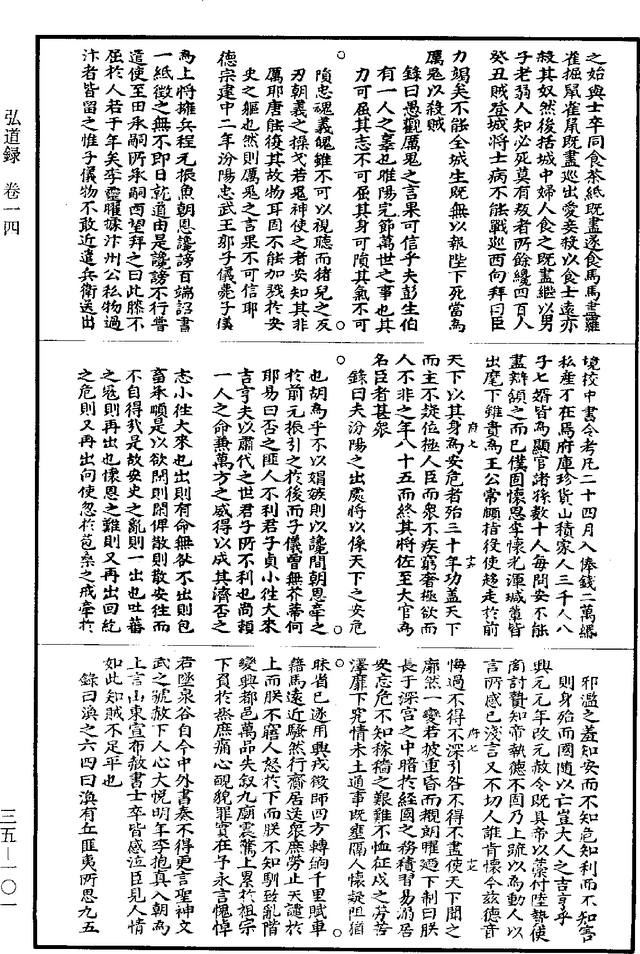 之始與士卒同食茶紙既盡遂食馬馬盡羅
雀掘鼠雀鼠既盡巡出愛妾殺以食士遠亦
殺其奴然後括城中婦人食之既盡繼以男
子老弱人知必死莫有叛者所餘纔四百人
癸丑賊登城將士病不能戰巡西向拜曰臣
力竭矣不能全城生既無以報陛下死當為
厲鬼以殺賊
錄曰愚觀厲鬼之言果可信乎夫彭生伯
有一人之暴也睢陽完節萬世之事也其
力可屈其志不可屈其身可隕其氣不可
隕忠魂義魄雖不可以視聽而猪兒之反
刃朝義之操戈若鬼神使之者安知其非
厲耶唐能復其故物耳固不能加戮於安
史之軀也然則厲鬼之言果不可信耶
德宗建中二年汾陽忠武王郭子儀薨子儀
為上將擁兵程元振魚朝恩讒謗百端詔書
一紙徵之無不即日就道由是讒謗不行嘗
遣使至田承嗣所承嗣西望拜之曰此膝不
屈於人若干年矣李靈曜據汴州公私物過
汴者皆留之惟子儀物不敢近遣兵衛送出
境校中書令考凡二十四月入俸錢二萬緡
私產不在焉府庫珍貨山積家人三千人八
子七婿皆為顯官諸孫數十人每問安不能
盡辯頷之而已僕固懷恩李懷光渾瑊輩皆
出麾下雖貴為王公常頤指役使趨走於前
天下以其身為安危者殆三十年功蓋天下
而主不疑位極人臣而眾不疾窮奢極欲而
人不非之年八十五而終其將佐至大官為
名臣者甚眾
錄曰夫汾陽之出處將以係天下之安危
也胡為乎不以媢嫉則以讒間朝恩牽之
於前元振引之於後而子儀曾無芥蒂何
耶易曰否之匪人不利君子貞小往大來
吉亨夫以肅代之世君子所不利也尚賴
一人之命兼萬方之威得以成其濟否之
志小往大來也出則有命無欲不出則包
畜承順是以欲閑則閑俾散則散安往而
不自得哉是故安史之亂則一出也吐蕃
之寇則再出也懷恩之難則又再出回紇
之危則又再出向使忽於苞桑之戒牽於
邪濫之羞知安而不知危知利而不知害
則身殆而國隨以亡豈大人之吉亨乎
興元元年改元赦令既具帝以藁付陸贄使
商討贄知帝執德不固乃上疏以為動人以
言所感已淺言又不切人誰肯懷今茲德音
悔過不得不深引咎不得不盡使天下聞之
廓然一變若披重昏而覩朗曜迺下制曰朕
長于深宮之中暗於經國之務積習易溺居
安忘危不知稼穡之艱難不恤征戍之勞苦
澤靡下究情未上通事既壅隔人懷疑阻猶
昧省己遂用興戎徵師四方轉餉千里賦車
籍馬遠近騷然行齎居送眾庶勞止天譴於
上而朕不寤人怒於下而朕不知馴致亂階
變興都邑萬品失敘九廟震驚上累於祖宗
下負於蒸庶痛心靦貌罪實在予永言愧悼
若墜泉谷自今中外書奏不得更言聖神文
武之號赦下人心大悅明年李抱真入朝為
上言山東宣布赦書士卒皆感泣臣見人情
如此知賊不足平也
錄曰渙之六四曰渙有丘匪夷所思九五
府七
十六
府七
十七
弘道録　卷一四
三五—一〇一